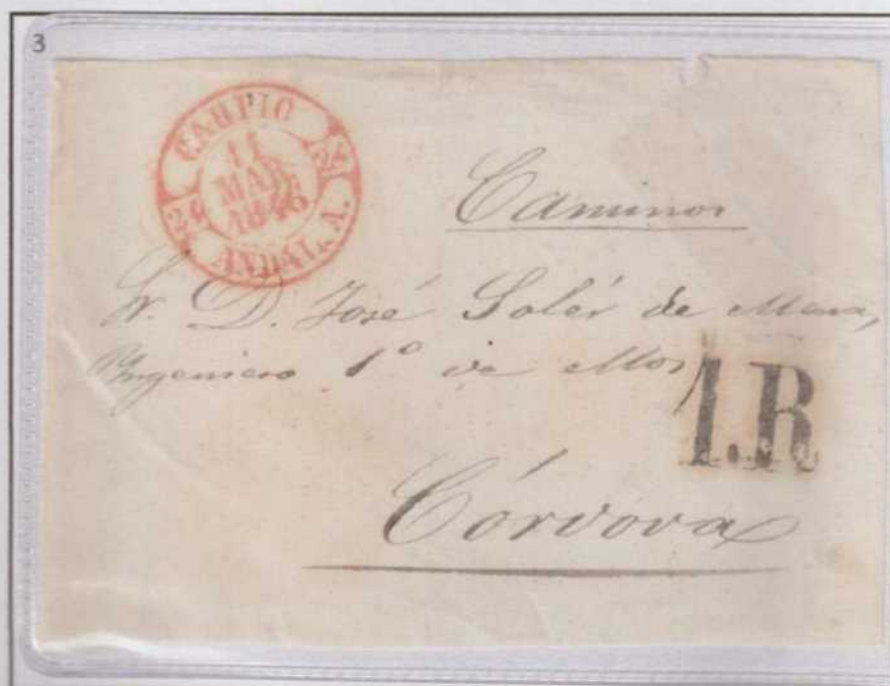 3
CARPIO
11
MAR
1846
ANDAL. A.
Caminos
Sr. D. José Solér de
Ingeniero 1º de
1.R
Córdova